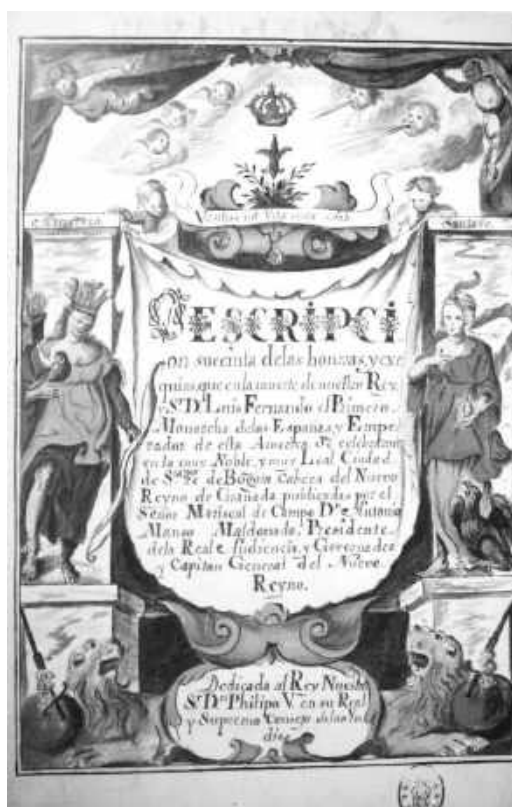 America
Santafe
DESCRIPCI
on sucinta de las honrras, y exe
quias, que en la muerte de nuestro Rey,
y Sr. Dn. Luis Fernando el Primero,
Monarcha de las Españas, y Empe
rador de esta America se celebraron
en la muy Noble, y muy Leal Ciudad
de Santafe de Bogota cabeza del Nuevo
Reyno de Granada publicadas por el
Señor Mariscal de Campo Dn. Antonio
Manso Maldonado, Presidente
dela Real Audiencia, y Governador
y Capitan General del Nuevo
Reyno.
Dedicada al Rey Nuestro
Sr. Dn. Philipo V. en su Real
y Supremo Consejo de las In
dias